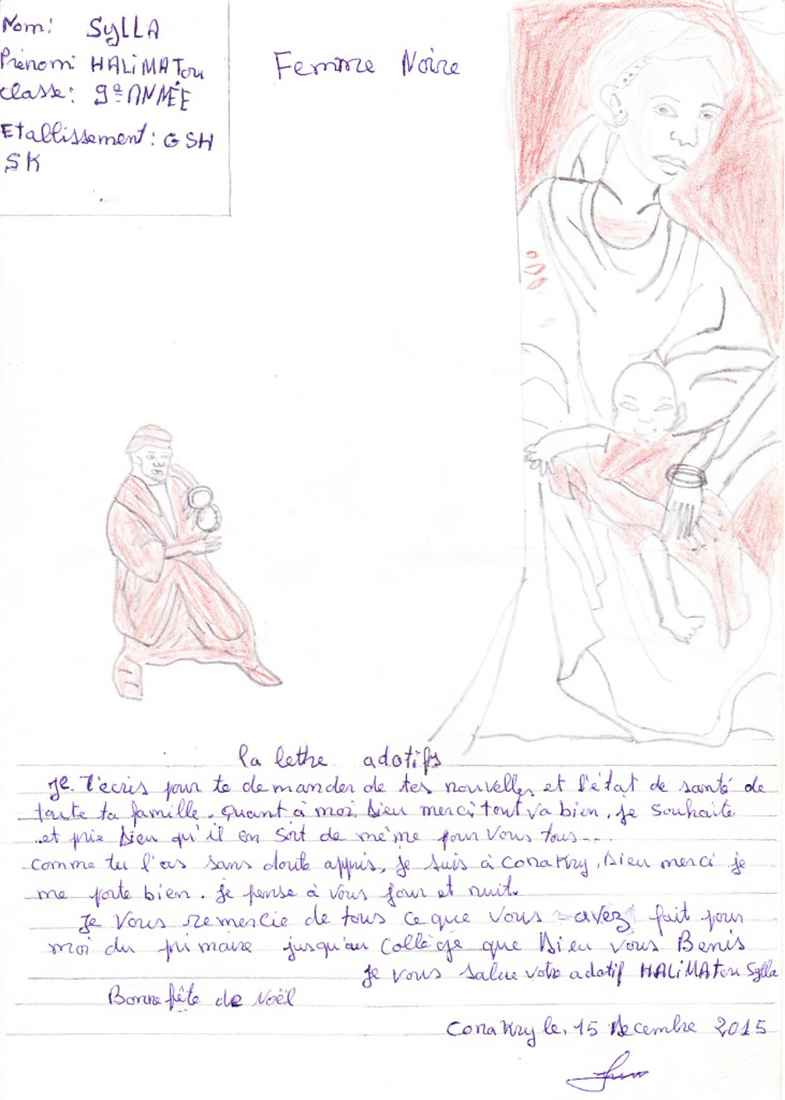 Nom: SyLLA
Prénom HALiMATou
classe: 9e ANNÉE
Etablissement: GSH
SK
Femme Noire
la lethe adotifs
Je t'écris pour te demander de tes nouvelles et l'état de santé de
toute ta famille. Quant à moi, Dieu merci tout va bien. Je souhaite
et prie Dieu qu'il en soit de même pour vous tous...
comme tu l'as sans doute appris, je suis à conakry, Dieu merci je
me porte bien. je pense à vous jour et nuit.
Je vous remercie de tous ce que vous avez fait pour
moi du primaire jusqu'au collège que Dieu vous Benis
Je vous salue votre adotif HALiMATou Sylla
Bonne fête de Noël
Conakry le, 15 Decembre 2015